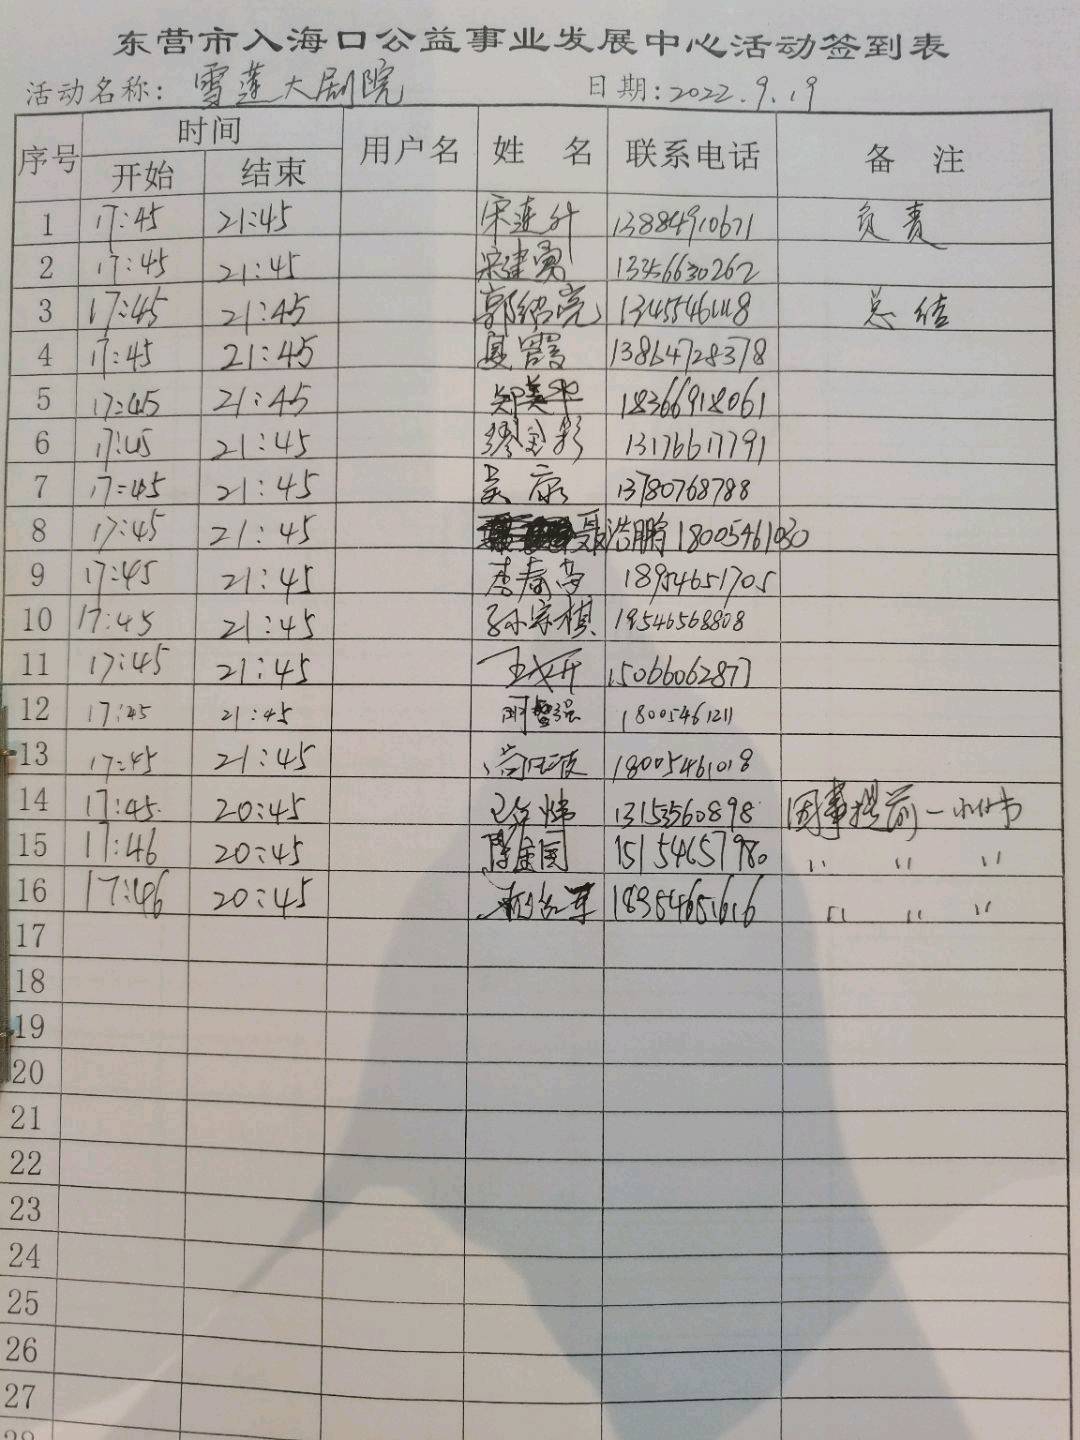 东营市入海口公益事业发展中心活动签到表
活动名称: 雪莲大剧院 日期: 2022.9.19
序号 时间 用户名 姓名 联系电话 备注
开始 结束
1 17:45 21:45 宋连升 13884910671 负责
2 17:45 21:45 宋建勇 13356630262
3 17:45 21:45 郭绍亮 总结
4 17:45 21:45 夏霞 13864728378
5 17:45 21:45 郑美华 18366918061
6 17:45 21:45 13176617791
7 17:45 21:45 吴康 13780768788
8 17:45 21:45 聂浩鹏 18005461030
9 17:45 21:45 李春梦 18954651705
10 17:45 21:45 孙宗棋 19546568808
11 17:45 21:45 15066062877
12 17:45 21:45 18005461211
13 17:45 21:45 18005461018
14 17:45 20:45 13155560898 因事提前一小时
15 17:46 20:45 15154657980 〃 〃 〃
16 17:46 20:45 18954651616 〃 〃 〃
17
18
19
20
21
22
23
24
25
26
27